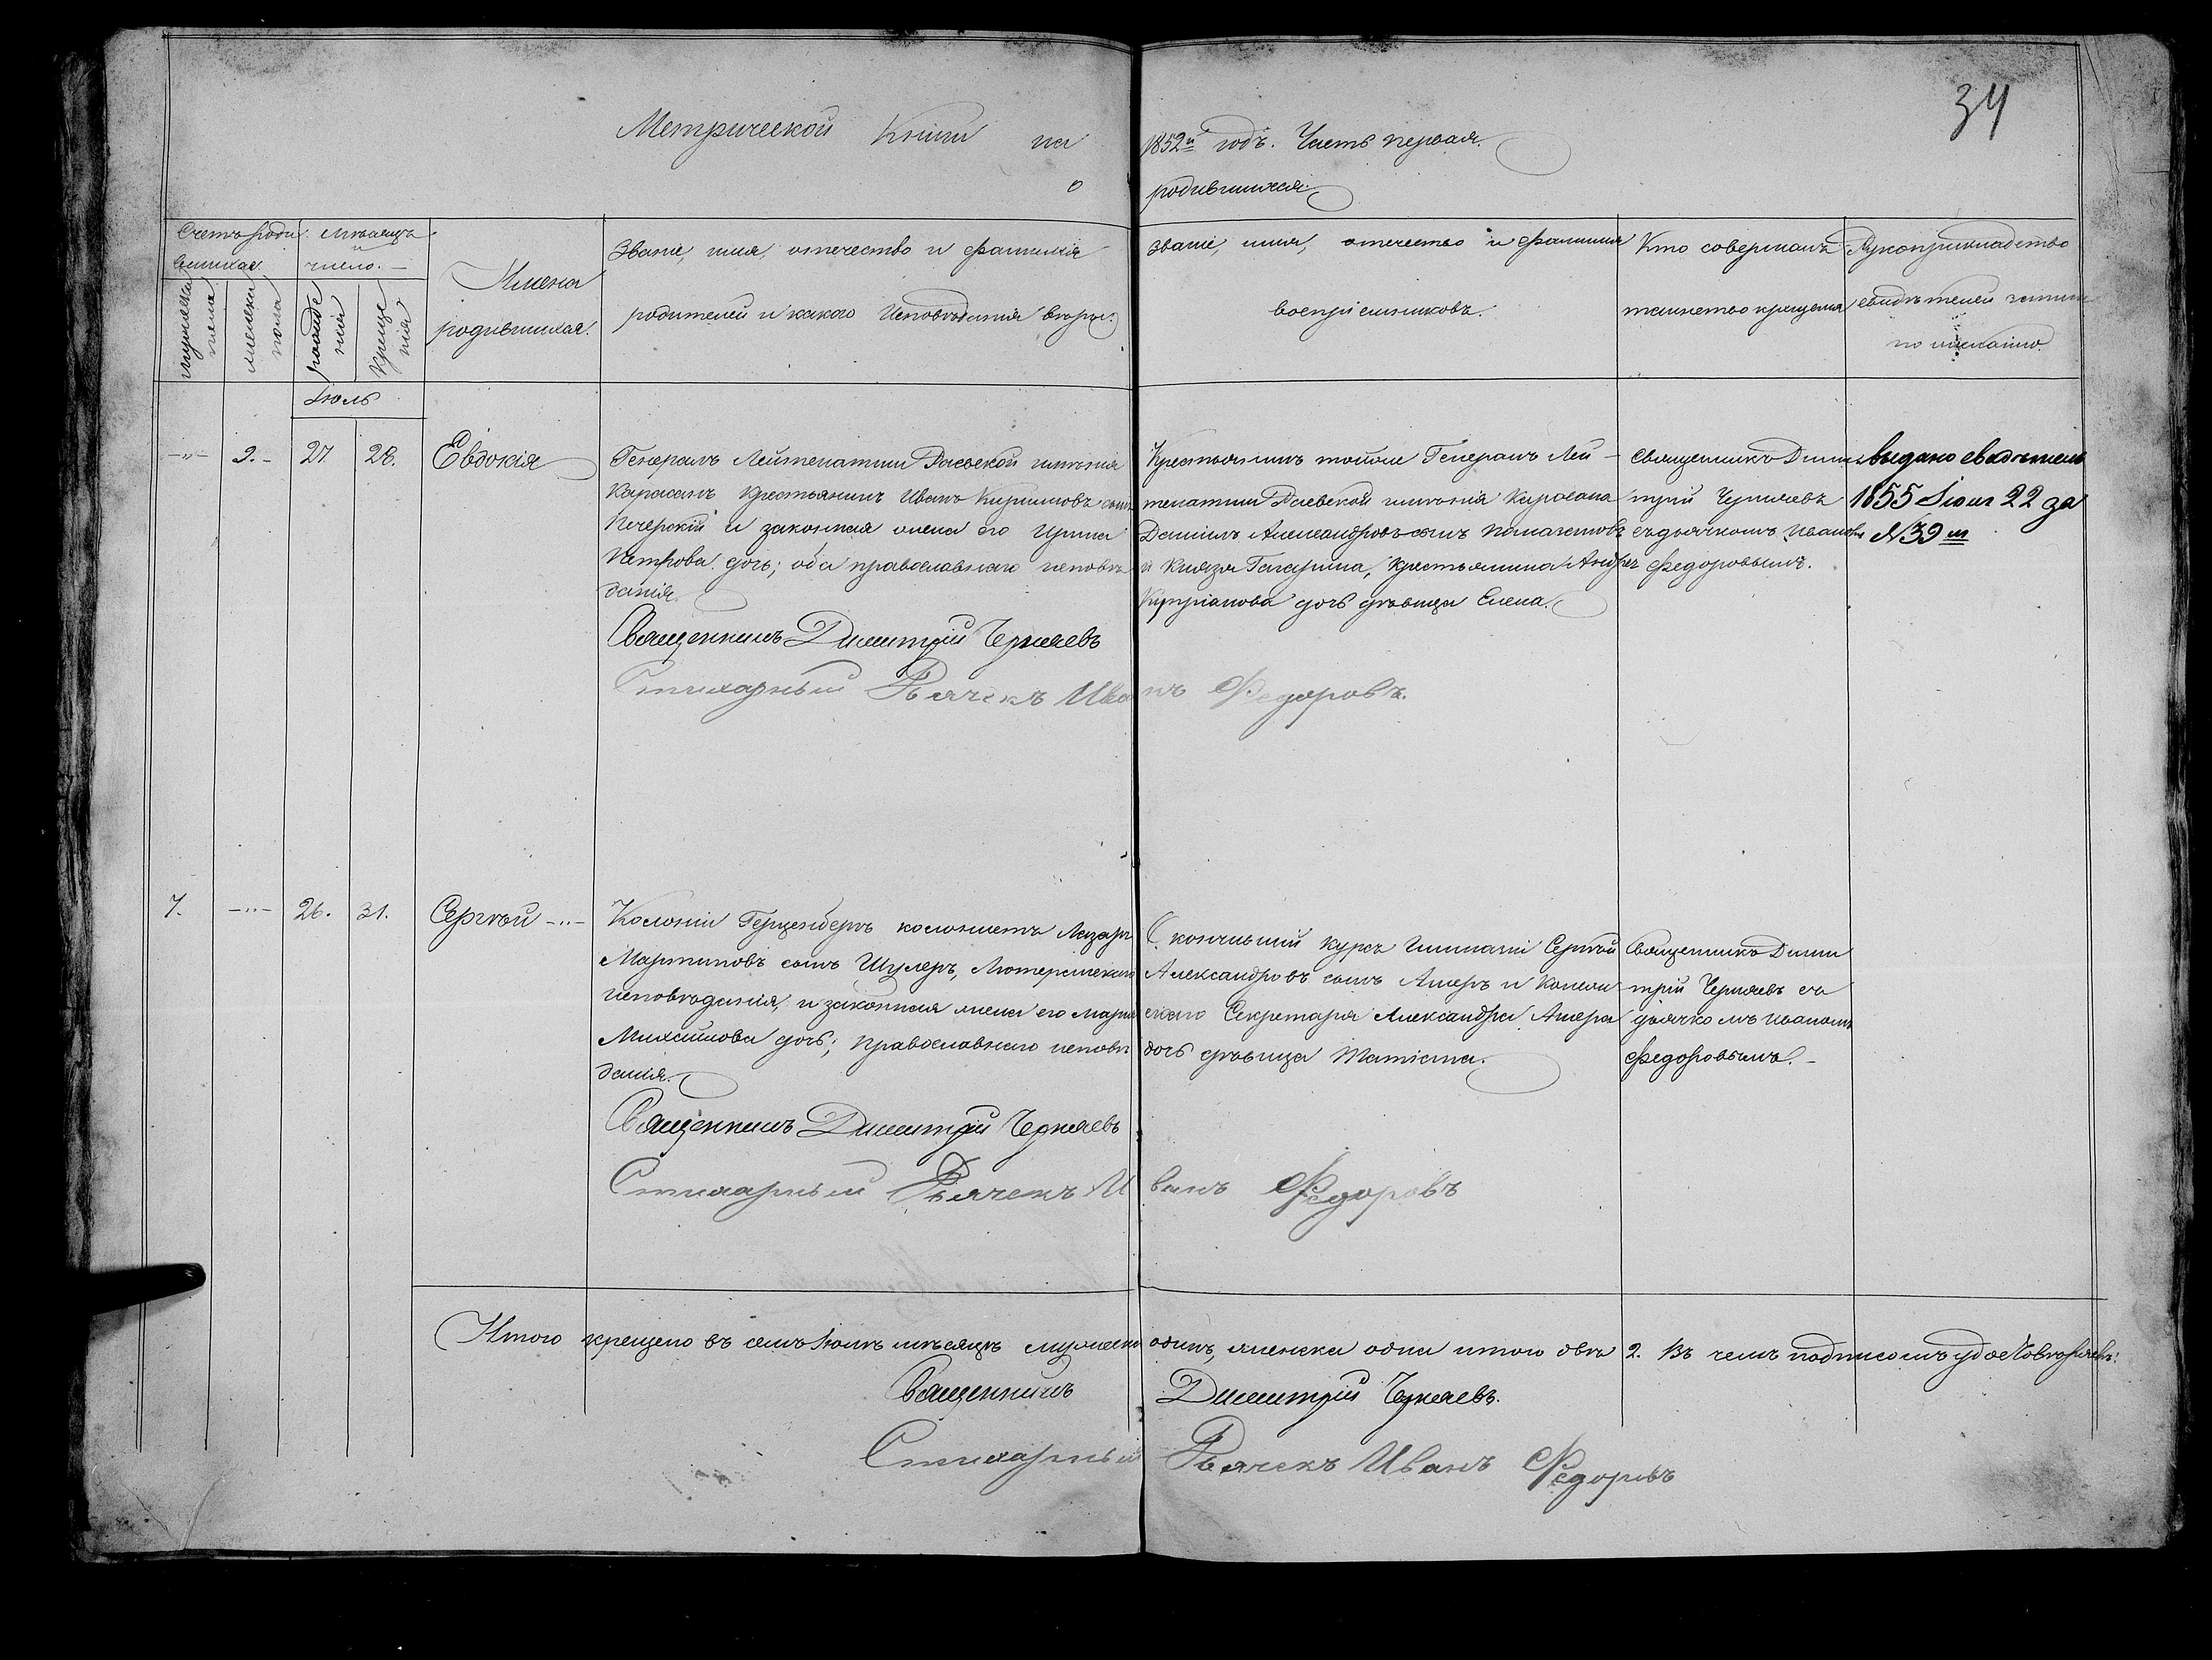 34
Метрической Книги на 1852й годъ. Часть первая.
о родившихся.
Счетъ роди вшихся
мѣсяцъ и число.
мужеска пола
женска пола
рожде нія
креще нія
Имена родившихся.
Званіе, имя, отечество и фамилія
родителей и какого Исповѣданія
званіе, имя, отечество и фамилія
воспріемниковъ.
Кто совершалъ
таинство крещенія
Рукоприкладство
свидѣтелей
по желанію.
Іюль
2. 27. 28. Евдокія
Генералъ Лейтенатши Раевской имѣнія
Карасанъ Крестьянинъ Иванъ Кириловъ сынъ
Печерскій и законная жена его Ирина
Петрова дочь; оба православнаго исповѣ
данія.
Священникъ Димитрій Черняевъ
Стихарный Дьячекъ Иванъ Федоровъ.
Крестьянинъ тойже Генералъ Лей
тенатши Раевской имѣнія Карасана
Даниилъ Александровъ сынъ
и Князя Гагарина, Крестьянина Андрея
Купріанова дочь дѣвица Елена.
Священникъ Дими
трій Черняевъ
съ дьячкомъ Иваномъ
Федоровымъ.
выдано свидѣтель
1855 Іюля 22 за
№ 39м
7. 26. 31. Сергѣй
Колоніи Герценбергъ колонистъ Лазарь
Мартиновъ сынъ Шулеръ, Лютеранскаго
исповѣданія, и законная жена его Марія
Михайлова дочь; православнаго исповѣ
данія.
Священникъ Димитрій Черняевъ
Стихарный Дьячекъ Иванъ Федоровъ
Окончившій курсъ Гимназіи Сергѣй
Александровъ сынъ Ашеръ и Коллеж
скаго Секретаря Александра Ашера
дочь дѣвица
Священникъ Дими
трій Черняевъ съ
дьячкомъ Иваномъ
Федоровымъ.
Итого крещено въ семъ Іюлѣ мѣсяцѣ мужеска одинъ, женска одна итого два 2. Въ чемъ подписомъ удостовѣряемъ:
Священникъ Димитрій Черняевъ.
Стихарный Дьячекъ Иванъ Федоровъ